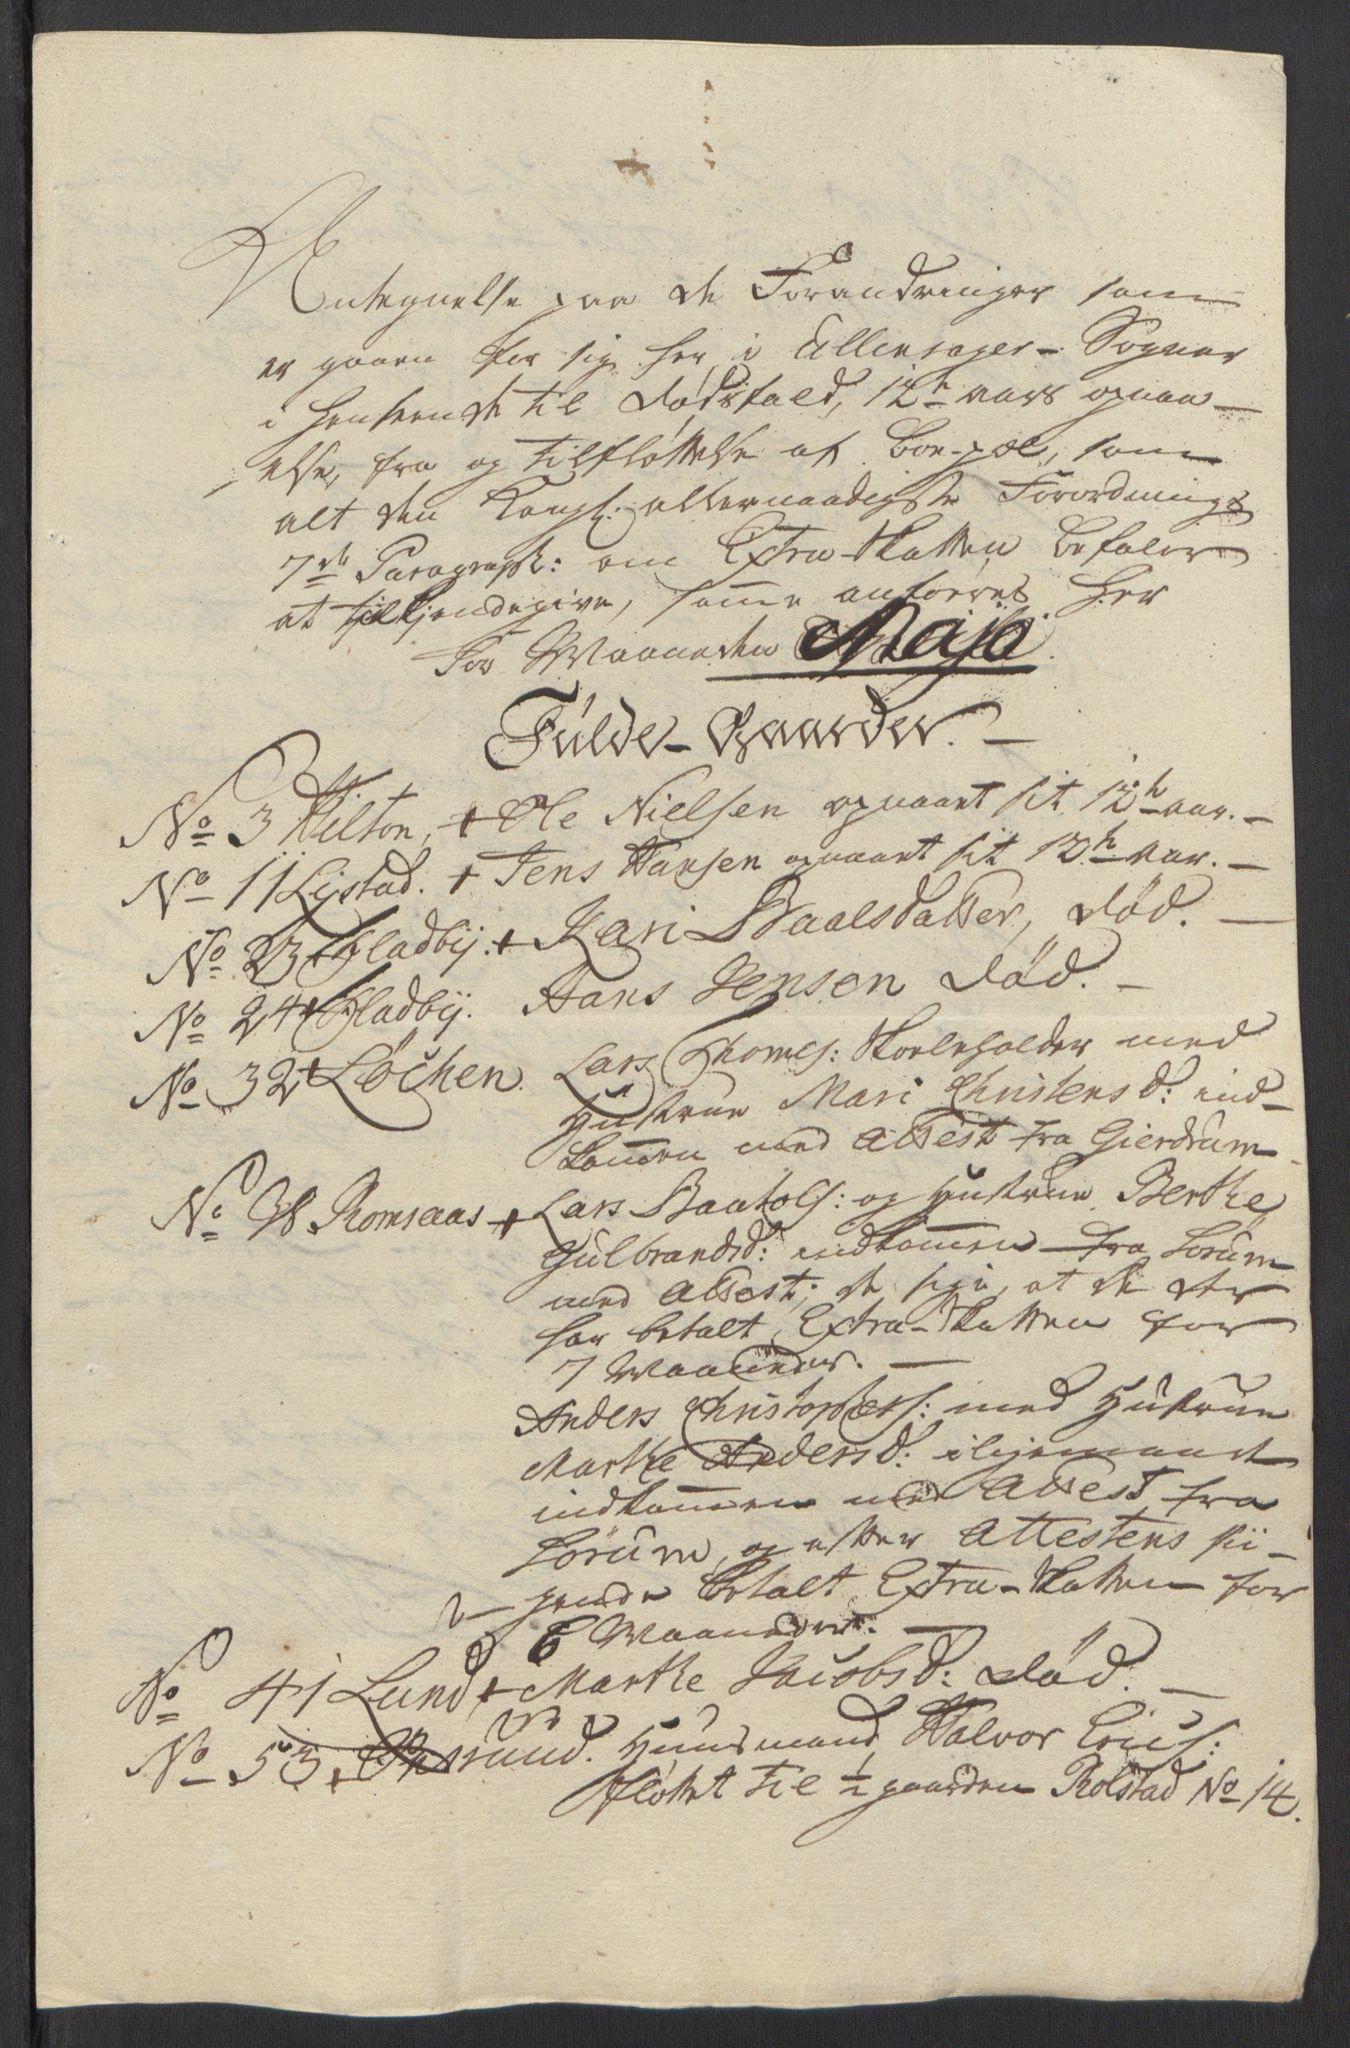 Antegnelse paa de Forandringer som
er gaaen for sig her i Ullensager-Sogner
i henseende til dødsfald, 12te aars opnaa-
else, fra og tilfløttelse af Boe-pæl, som
alt den Kongl: allernaadigste Forordnings
7de Paragraph: om Extra-Skatten befaler
at tilkjendegive, same anføeres her
for Maaneden Majo.
Fulde-Gaarder.
No 3 Hilton, + Ole Nielsen opnaaet sit 12te aar.
No 11 Lystad. + Jens Hansen opnaaet sit 12te aar.
No 23 + Fladbÿ. + Kari Paalsdatter, død.
No 24 + Fladbÿ. Hans Jensen død.
No 32 + Løchen. Lars Thomes: Skoeleholder med
Hustrue Mari Christensd: ind-
komen med Attest fra Gierdrum
No 38 Romsaas + Lars Paatols: og Hustrue Berthe
Gulbrandsd: indkommen fra Sørum
med Attest; de sige, at de der
har betalt Extra-Skatten for
7 Maaneder.
Anders Christophers: med Hustrue
Marthe Andersd: iligemaade
indkommen med Attest fra
Sørum, og efter Attestens sii-
gende betalt Extra-Skatten for
6 Maaneder.
No 41 Lund + Marthe Jacobsd: død.
No 53 + Huusmand Halvor Erics:
fløttet til 1/2 gaarden Rolstad No 14.